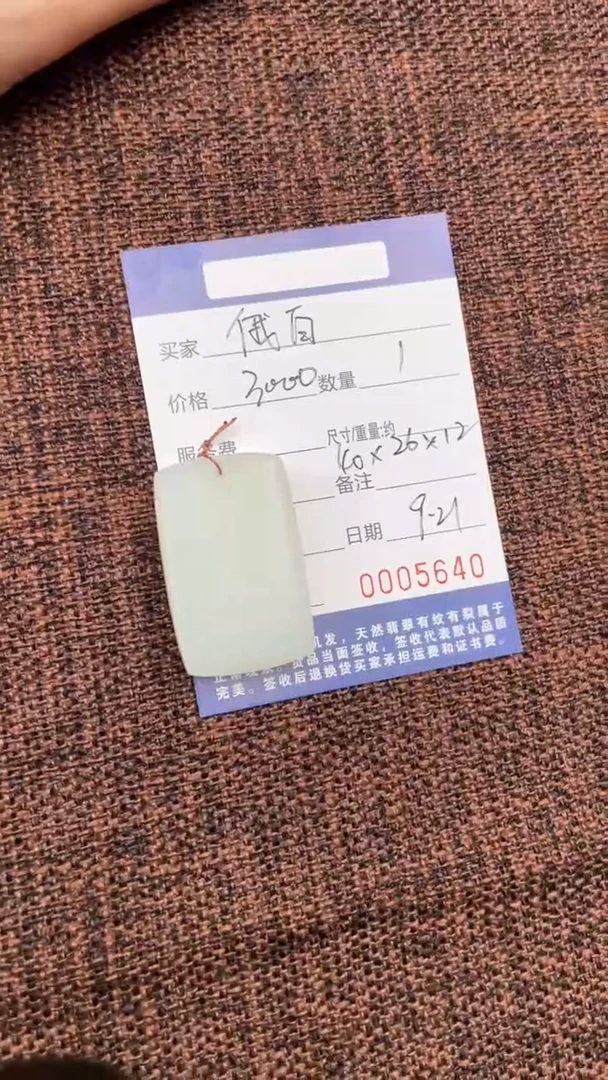 买家 俄百
价格 3000 数量 1
服务费 尺寸/重量:约
40×26×12
备注
日期 9-21
0005640
机发，天然翡翠有纹有裂属于
货品当面签收，签收代表默认品质
完美。签收后退换货买家承担运费和证书费。